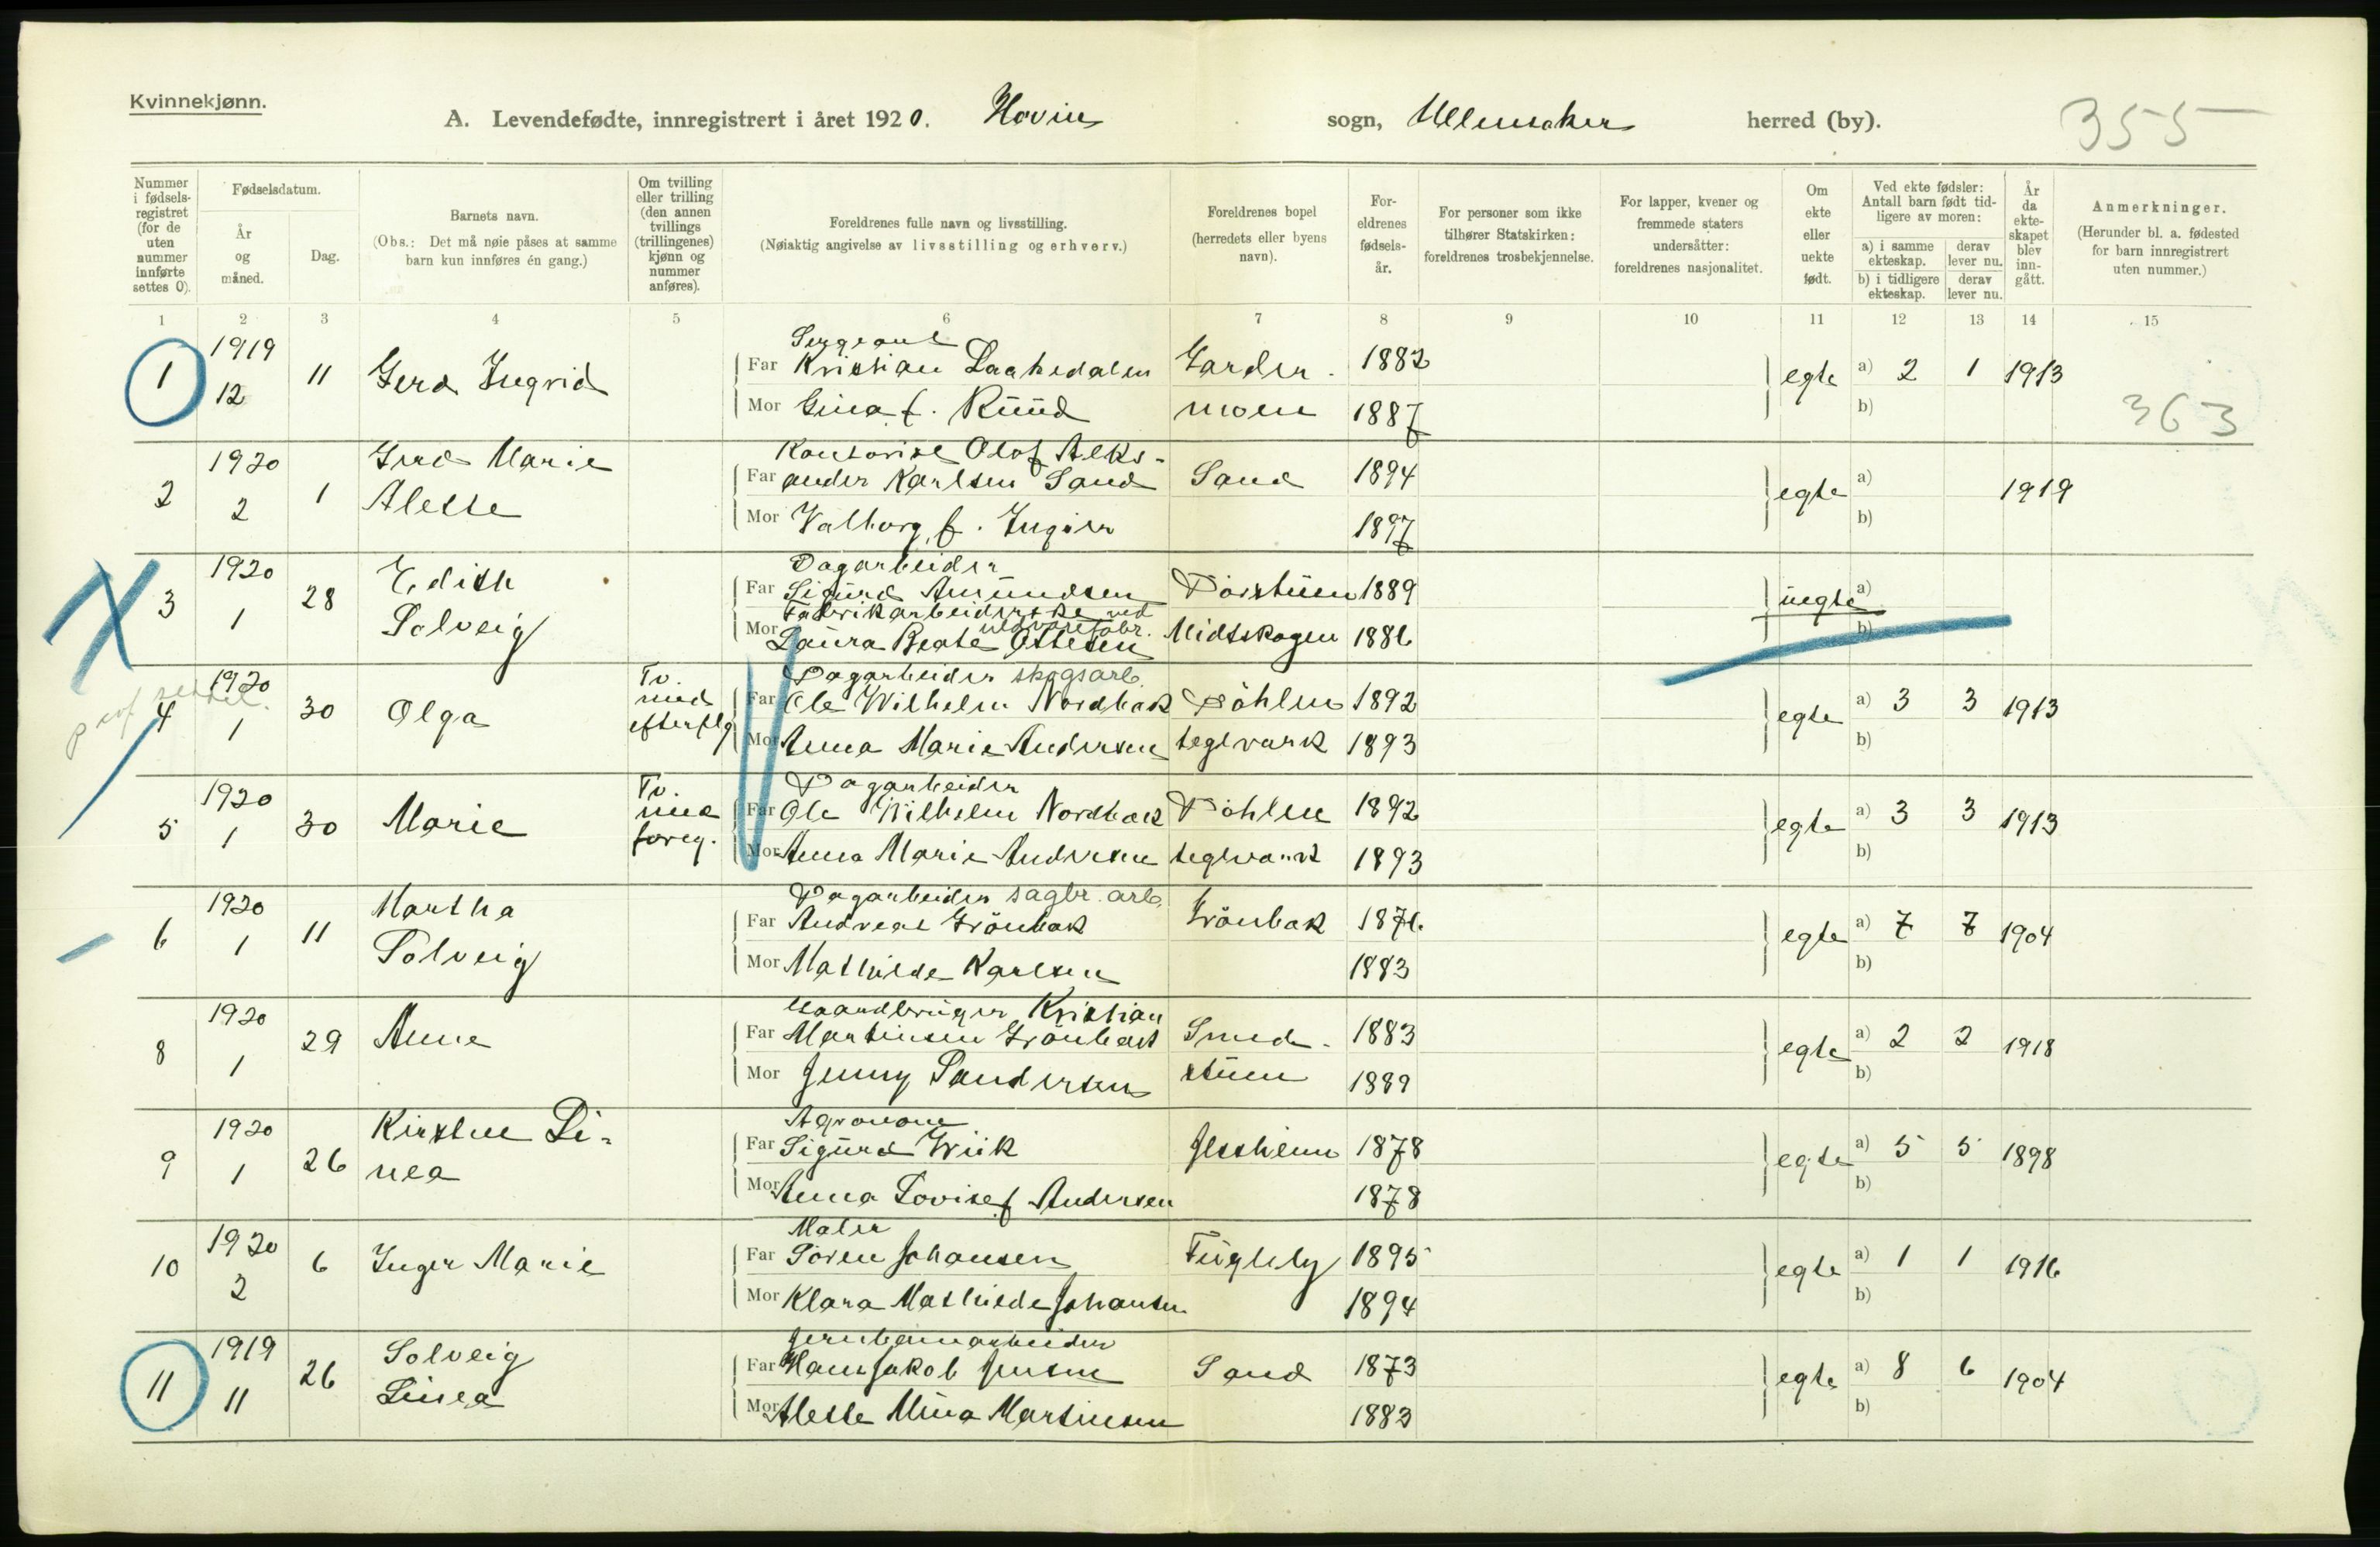 Kvinnekjønn.
A. Levendefødte, innregistrert i året 1920. Hovin sogn, Ullensaker herred (by).
355
Nummer i fødsels-registret (for de uten nummer innførte settes 0).
Fødselsdatum.
År og måned.
Dag.
Barnets navn.
(Obs.: Det må nøie påses at samme barn kun innføres én gang.)
Om tvilling eller trilling (den annen tvillings (trillingenes) kjønn og nummer anføres).
Foreldrenes fulle navn og livsstilling.
(Nøiaktig angivelse av livsstilling og erhverv.)
Foreldrenes bopel (herredets eller byens navn).
For-eldrenes fødsels-år.
For personer som ikke tilhører Statskirken: foreldrenes trosbekjennelse.
For lapper, kvener og fremmede staters undersåtter: foreldrenes nasjonalitet.
Om ekte eller uekte født.
Ved ekte fødsler: Antall barn født tid-ligere av moren:
a) i samme ekteskap.
derav lever nu.
b) i tidligere ekteskap.
derav lever nu.
År da ekte-skapet blev inn-gått.
Anmerkninger.
(Herunder bl. a. fødested for barn innregistrert uten nummer.)
1 2 3 4 5 6 7 8 9 10 11 12 13 14 15
Sergeant
1 1919 12 11 Gerd Ingrid Far Kristian Laakedalen Garder- 1882 egte a) 2 1 1913
Mor Gina f. Ruud moen 1887 b)
363
Kontorist Olof Aleks-
2 1920 2 1 Gerd Marie Far ander Karlsen Sand Sand 1894 egte a) 1919
Alette Mor Valborg f. Ingier 1897 b)
Dagarbeider
3 1920 1 28 Edith Far Sigurd Amundsen 1889 uegte a)
Fabrikarbeiderske ved
Solveig Mor Laura Beate Ottesen Midtskogen 1886 b)
Dagarbeider skogsarb.
4 1920 1 30 Olga Tv. med efterflg Far Ole Wilhelm Nordbak Döhlen 1892 egte a) 3 3 1913
Mor Anna Marie Andersen teglverk 1893 b)
Dagarbeider
5 1920 1 30 Marie Tv. med foreg. Far Ole Wilhelm Nordbak Döhlen 1892 egte a) 3 3 1913
Mor Anna Marie Andersen teglverk 1893 b)
Dagarbeider sagbr. arb.
6 1920 1 11 Martha Far Andreas Grönbak Grönbak 1876 egte a) 7 7 1904
Solveig Mor Mathilde Karlsen 1883 b)
Gaardbruger Kristian
8 1920 1 29 Anne Far Martinsen Grönbak Smed- 1883 egte a) 2 2 1918
Mor Jenny Sandersen stuen 1889 b)
Agronom
9 1920 1 26 Kirsten Li- Far Sigurd Wiik Jessheim 1878 egte a) 5 5 1898
nea Mor Anna Lovise f Andersen 1878 b)
Maler
10 1920 2 6 Inger Marie Far Sören Johansen Fugleby 1895 egte a) 1 1 1916
Mor Klara Mathilde Johansen 1894 b)
Jernbanearbeider
11 1919 11 26 Solveig Far Hans Jakob Jensen Sand 1873 egte a) 8 6 1904
Linea Mor Alette Mina Martinsen 1883 b)